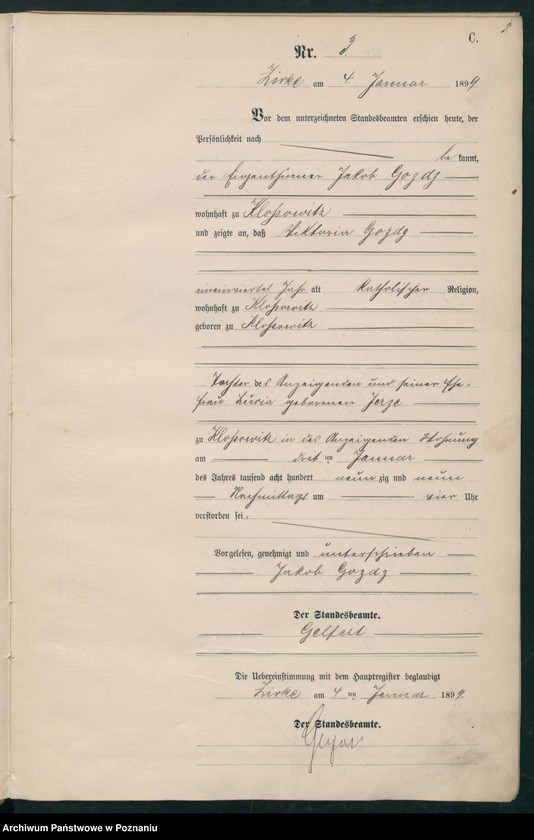 C.
Nr. 3
Zirke am 4. Januar 1899.
Vor dem unterzeichneten Standesbeamten erschien heute, der
Persönlichkeit nach
be kannt,
der Eigenthümer Jakob Gozdz
wohnhaft zu Klossowitz
und zeigte an, daß Viktoria Gozdz
eineinviertel Jahr alt katholischer Religion,
wohnhaft zu Klossowitz
geboren zu Klossowitz
Tochter des Anzeigenden und seiner Ehe-
frau geborenen
zu Klossowitz in des Anzeigenden Wohnung
am dritten Januar
des Jahres tausend acht hundert neunzig und neun
Nachmittags um vier Uhr
verstorben sei.
Vorgelesen, genehmigt und unterschrieben
Jakob Gozdz
Der Standesbeamte.
Die Uebereinstimmung mit dem Hauptregister beglaubigt
Zirke am 4ten Januar 1899.
Der Standesbeamte.
Archiwum Państwowe w Poznaniu